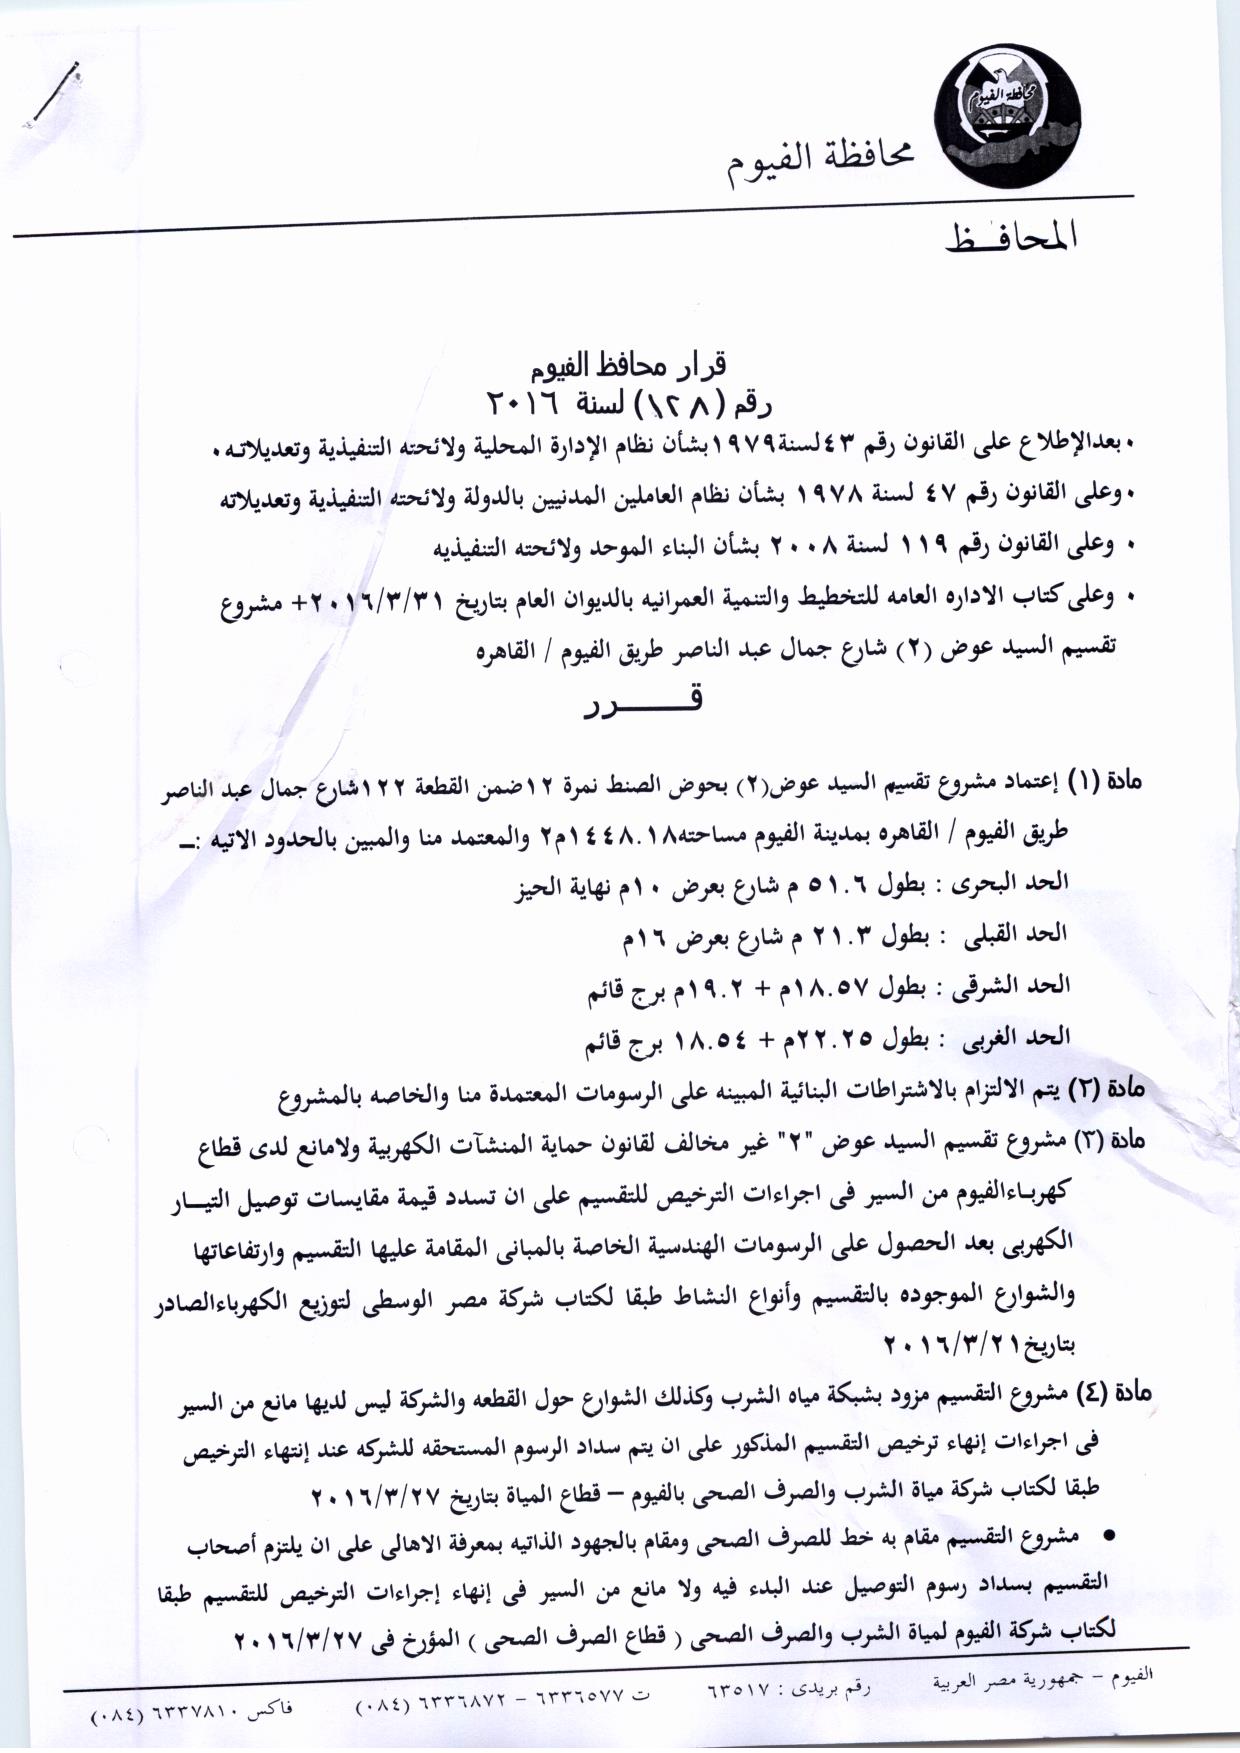 محافظة الفيوم
محافظة الفيوم
المحافـــظ
قرار محافظ الفيوم
رقم (١٢٨) لسنة ٢٠١٦
• بعدالإطلاع على القانون رقم ٤٣ لسنة١٩٧٩بشأن نظام الإدارة المحلية ولائحته التنفيذية وتعديلاتـه•
• وعلى القانون رقم ٤٧ لسنة ١٩٧٨ بشأن نظام العاملين المدنيين بالدولة ولائحته التنفيذية وتعديلاته
• وعلى القانون رقم ١١٩ لسنة ٢٠٠٨ بشأن البناء الموحد ولائحته التنفيذيه
• وعلى كتاب الاداره العامه للتخطيط والتنمية العمرانيه بالديوان العام بتاريخ ٢٠١٦/٣/٣١+ مشروع
تقسيم السيد عوض (٢) شارع جمال عبد الناصر طريق الفيوم / القاهره
قـــــــرر
مادة (١) إعتماد مشروع تقسيم السيد عوض(٢) بحوض الصنط نمرة ١٢ضمن القطعة ١٢٢شارع جمال عبد الناصر
طريق الفيوم / القاهره بمدينة الفيوم مساحته١٤٤٨.١٨م٢ والمعتمد منا والمبين بالحدود الاتيه :ــ
الحد البحرى : بطول ٥١.٦ م شارع بعرض ١٠م نهاية الحيز
الحد القبلى : بطول ٢١.٣ م شارع بعرض ١٦م
الحد الشرقى : بطول ١٨.٥٧م + ١٩.٢م برج قائم
الحد الغربى : بطول ٢٢.٢٥م + ١٨.٥٤ برج قائم
مادة (٢) يتم الالتزام بالاشتراطات البنائية المبينه على الرسومات المعتمدة منا والخاصه بالمشروع
مادة (٣) مشروع تقسيم السيد عوض "٢" غير مخالف لقانون حماية المنشآت الكهربية ولامانع لدى قطاع
كهربـاءالفيوم من السير فى اجراءات الترخيص للتقسيم على ان تسدد قيمة مقايسات توصيل التيـــار
الكهربى بعد الحصول على الرسومات الهندسية الخاصة بالمبانى المقامة عليها التقسيم وارتفاعاتها
والشوارع الموجوده بالتقسيم وأنواع النشاط طبقا لكتاب شركة مصر الوسطى لتوزيع الكهرباءالصادر
بتاريخ٢٠١٦/٣/٢١
مادة (٤) مشروع التقسيم مزود بشبكة مياه الشرب وكذلك الشوارع حول القطعه والشركة ليس لديها مانع من السير
فى اجراءات إنهاء ترخيص التقسيم المذكور على ان يتم سداد الرسوم المستحقه للشركه عند إنتهاء الترخيص
طبقا لكتاب شركة مياة الشرب والصرف الصحى بالفيوم – قطاع المياة بتاريخ ٢٠١٦/٣/٢٧
• مشروع التقسيم مقام به خط للصرف الصحى ومقام بالجهود الذاتيه بمعرفة الاهالى على ان يلتزم أصحاب
التقسيم بسداد رسوم التوصيل عند البدء فيه ولا مانع من السير فى إنهاء إجراءات الترخيص للتقسيم طبقا
لكتاب شركة الفيوم لمياة الشرب والصرف الصحى ( قطاع الصرف الصحى ) المؤرخ فى ٢٠١٦/٣/٢٧
الفيوم – جمهورية مصر العربية رقم بريدى : ٦٣٥١٧ ت ٦٣٣٦٥٧٧ – ٦٣٣٦٨٧٢ (٠٨٤) فاكس ٦٣٣٧٨١٠ (٠٨٤)